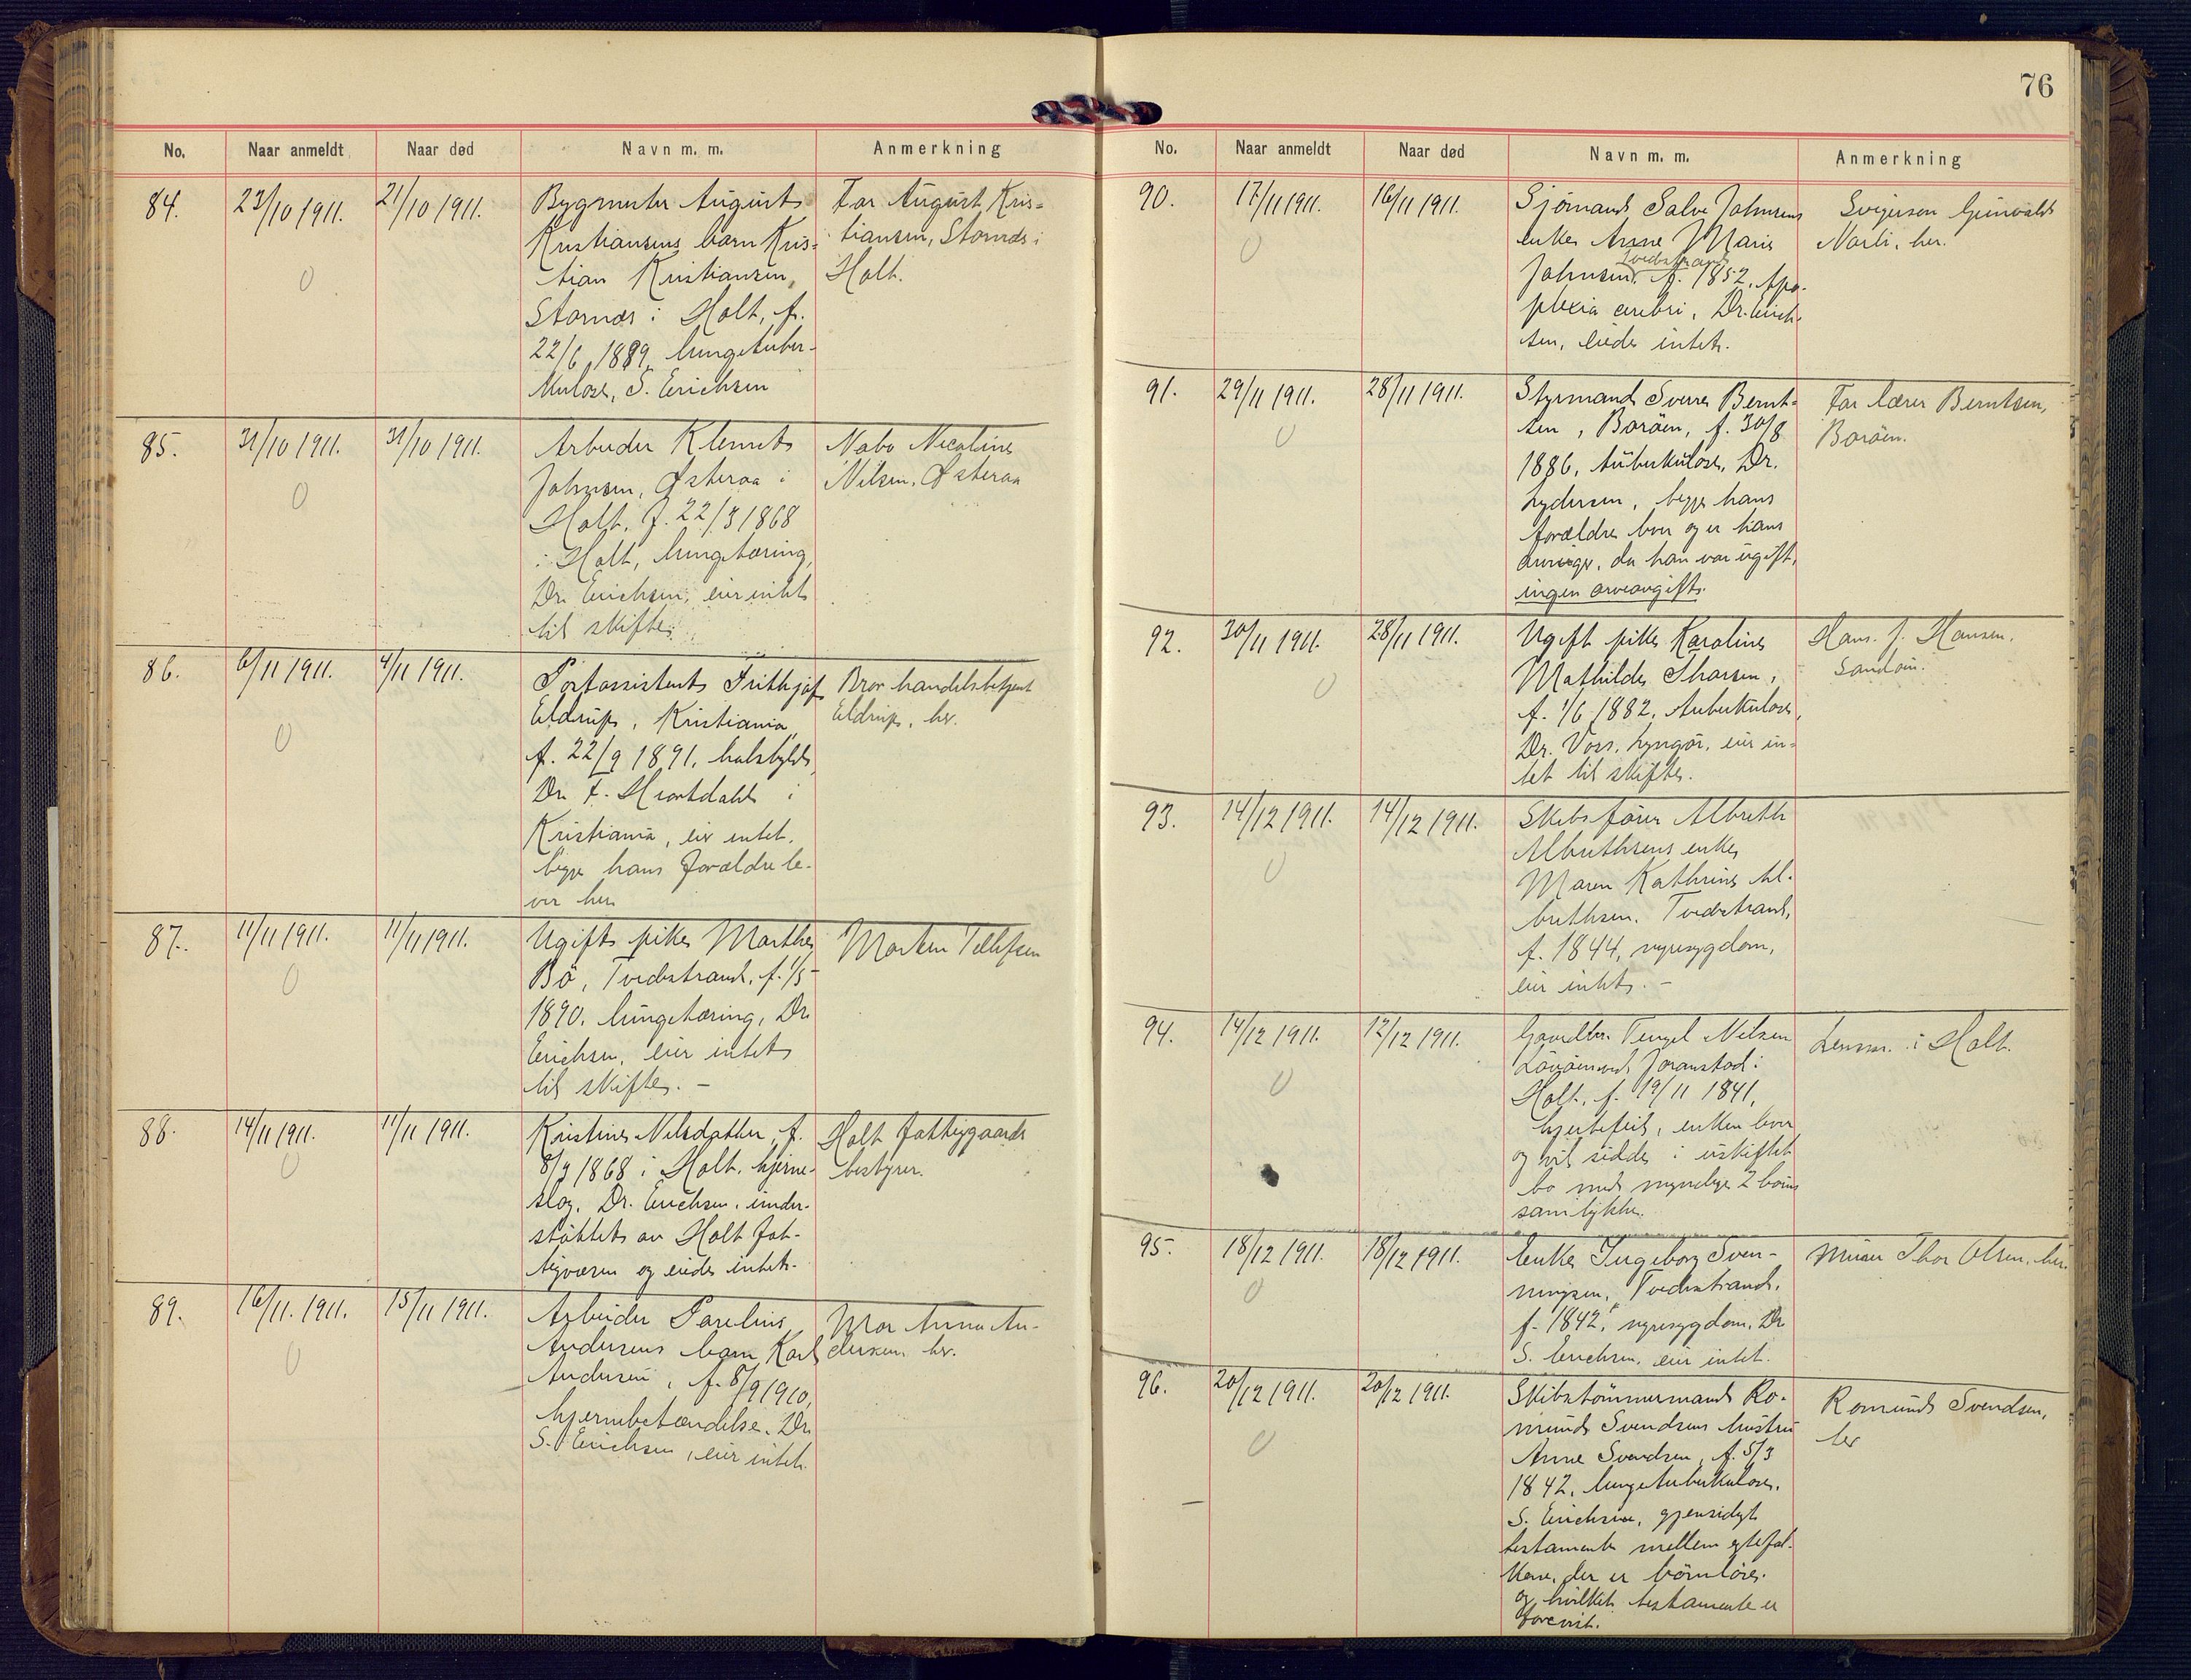 76
No. Naar anmeldt Naar død Navn m. m. Anmerkning
84. 23/10 1911. 21/10 1911. Bygmester August Far August Kris-
Kristiansens barn Kris- tiansen, Stornæs i
tian Kristiansen, Holt.
Stornæs i Holt, f.
22/6 1889, lungetuber-
kulose, S. Erichsen
85. 31/10 1911. 31/10 1911. Arbeider Klemet Nabo Nicoline
Johnsen, Østeraa i Nilsen, Østeraa
Holt, f. 22/3 1868
i Holt, lungetæring,
Dr. Erichsen, eier intet
til skifte.
86. 6/11 1911. 4/11 1911. Postassistent Frithjof Bror handelsbetjent
Eldrup, Kristiania, Eldrup, her.
f. 22/9 1891, halsbyld,
Dr. F. Hiortdahl i
Kristiania, eier intet.
begge hans forældre le-
ver her
87. 11/11 1911. 11/11 1911. Ugift pike Marthe Morten Tellefsen
Bö, Tvedestrand, f. 1/5
1890. lungetæring, Dr.
Erichsen, eier intet
til skifte. -
88. 14/11 1911. 11/11 1911. Kristine Nilsdatter, f. Holt fattiggaards
8/9 1868 i Holt, hjerne- bestyrer.
slag, Dr. Erichsen, under-
støttet av Holt fat-
tigvæsen og eiede intet.
89. 16/11. 1911. 15/11 1911. Arbeider Parelius Mor Anna An-
Andersens barn Karl dersen, her.
Andersen, f. 8/9 1910,
hjernebetændelse, Dr.
S. Erichsen, eier intet.
No. Naar anmeldt Naar død Navn m. m. Anmerkning
90. 17/11 1911. 16/11 1911. Sjömand Salve Johnsens Svigersøn Grünvald
enke Anne Marie Narli, her.
Tvedestrand
Johnsen, f. 1852, Apo-
plexia cerebri, Dr. Erich-
sen, eiede intet.
91. 29/11 1911. 28/11 1911. Styrmand Sverre Bernt- Far lærer Berntsen,
sen, Borøen, f. 30/8 Borøen.
1886, tuberkulose, Dr.
Lydersen, begge hans
forældre lever og er hans
arvinger, da han var ugift,
ingen arveavgift.
92. 30/11 1911. 28/11 1911. Ugift pike Karoline Hans J. Hansen.
Mathilde Thorsen, Sandøen.
f. 1/6 1882, tuberkulose,
Dr. Voss, Lyngør, eier in-
tet til skifte.
93. 14/12 1911. 14/12 1911. Skibsfører Albreth
Albrethsens enke
Maren Kathrine Al-
brethsen, Tvedestrand,
f. 1844, nyresygdom,
eier intet. -
94. 14/12 1911. 12/12 1911. Gaardbr. Tengel Nilsen Lensm. i Holt.
Joranstad i
Holt, f. 19/11 1841,
hjertefeil, enken lever
og vil sidde i uskiftet
bo med myndige 2 börns
samtykke.
95. 18/12 1911. 18/12 1911. Enke Ingeborg Sven- Murer Thor Olsen, her.
ningsen, Tvedestrand,
f. 1842, nyresygdom, Dr.
S. Erichsen, eier intet.
96. 20/12 1911. 20/12 1911. Skibstömmermand Ro- Romund Svendsen,
mund Svendsens hustru her
Anne Svendsen, f. 5/3
1842, lungetuberkulose,
S. Erichsen, gjensidigt
testamente mellem egtefol-
kene, der er börnlöse,
og hvilket testamente er
forevist.